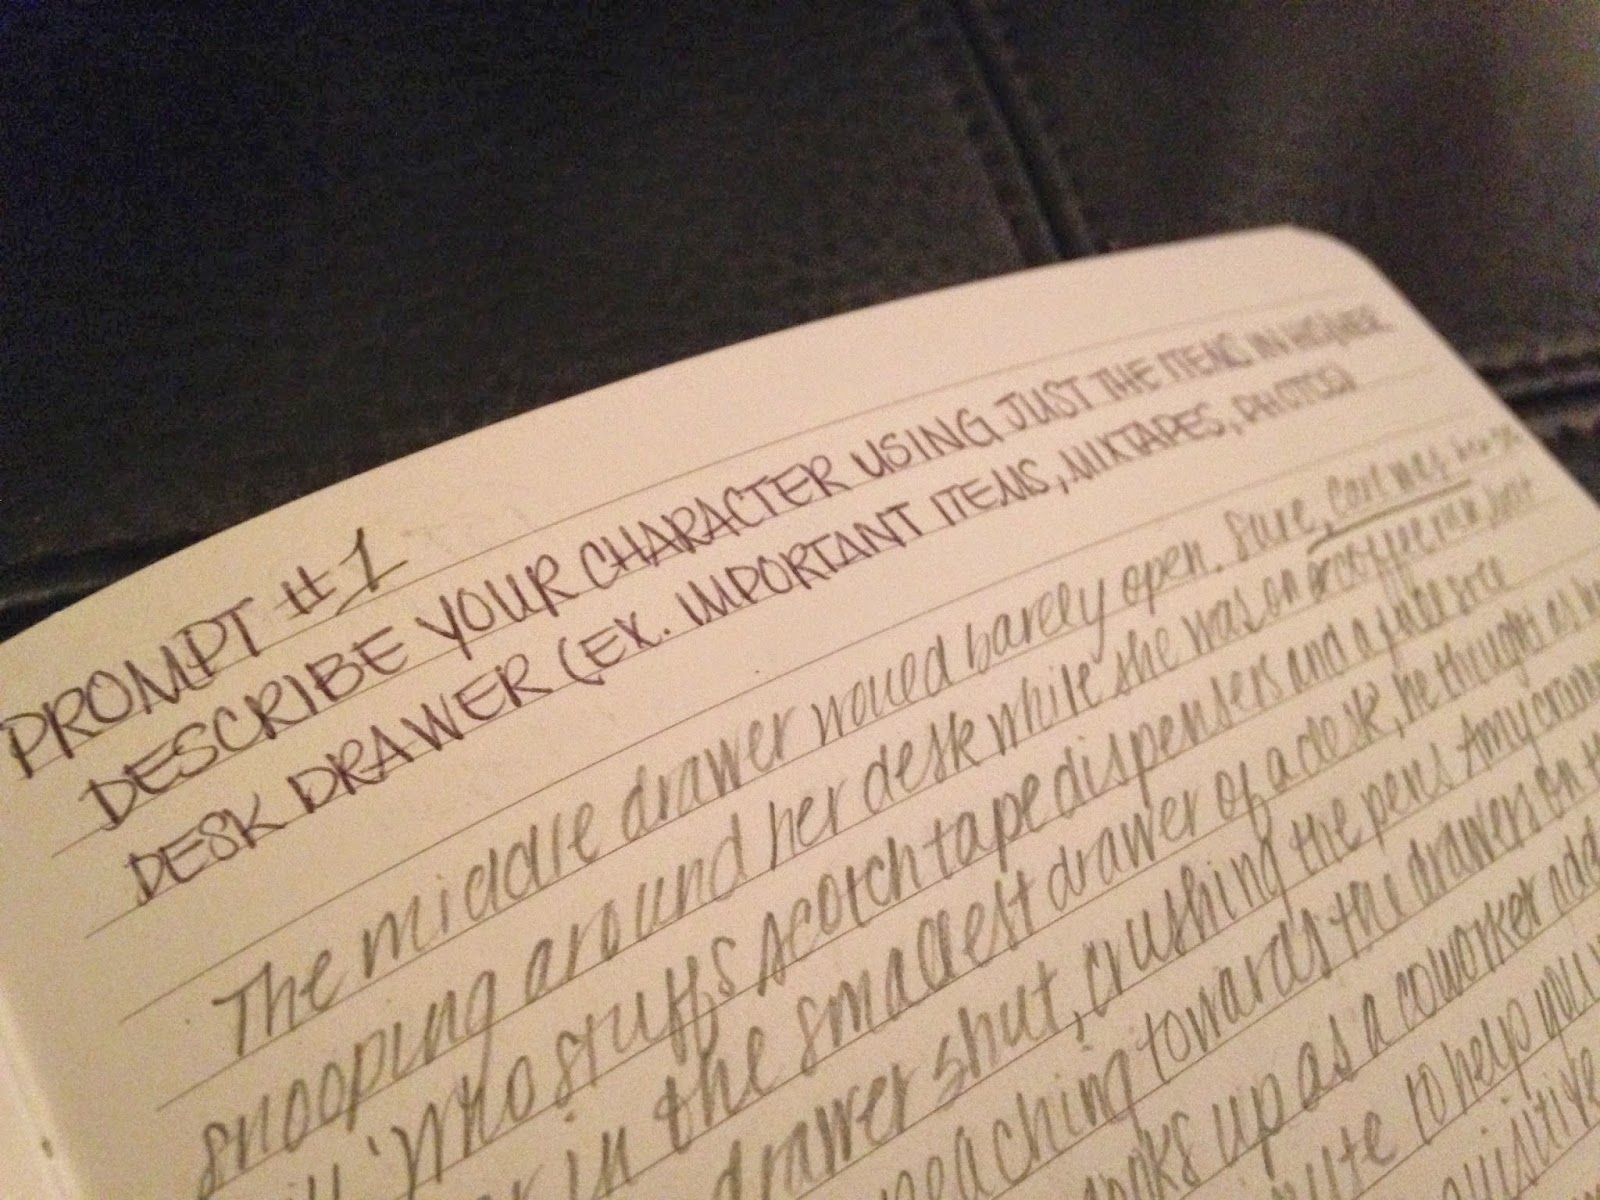 PROMPT #1
DESCRIBE YOUR CHARACTER USING JUST THE ITEMS IN HIS/HER
DESK DRAWER (EX. IMPORTANT ITEMS, MIXTAPES, PHOTOS)
The middle drawer would barely open. Sure, Carl was
snooping around her desk while she was on a coffee run, but
who stuffs scotch tape dispensers and a
in the smallest drawer of a desk, he thought as he
drawer shut, crushing the pens Amy
reaching towards the drawers on
looks up as a coworker
to help you